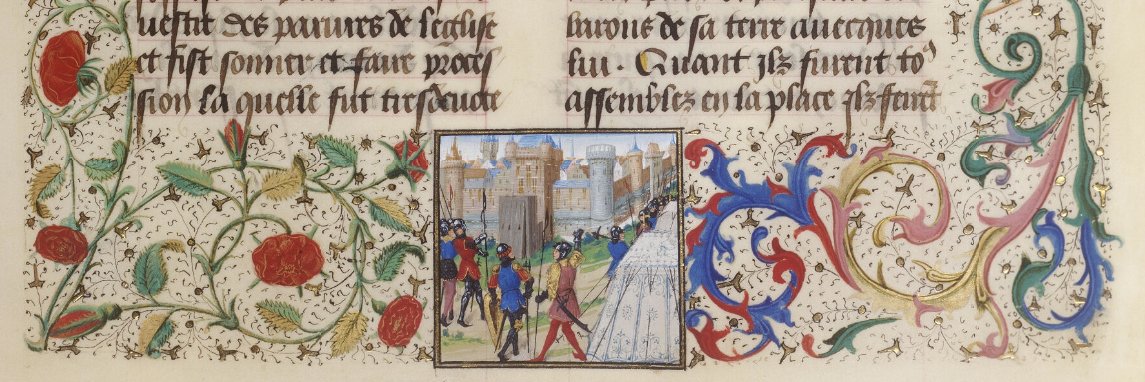 uestir des parures de leglise
et fist sonner et faire proces
sion la quelle fut tresdeuote
barons de sa terre auecques
lui · Quant ilz furent to⁹
assemblez en la place ilz feirẽt